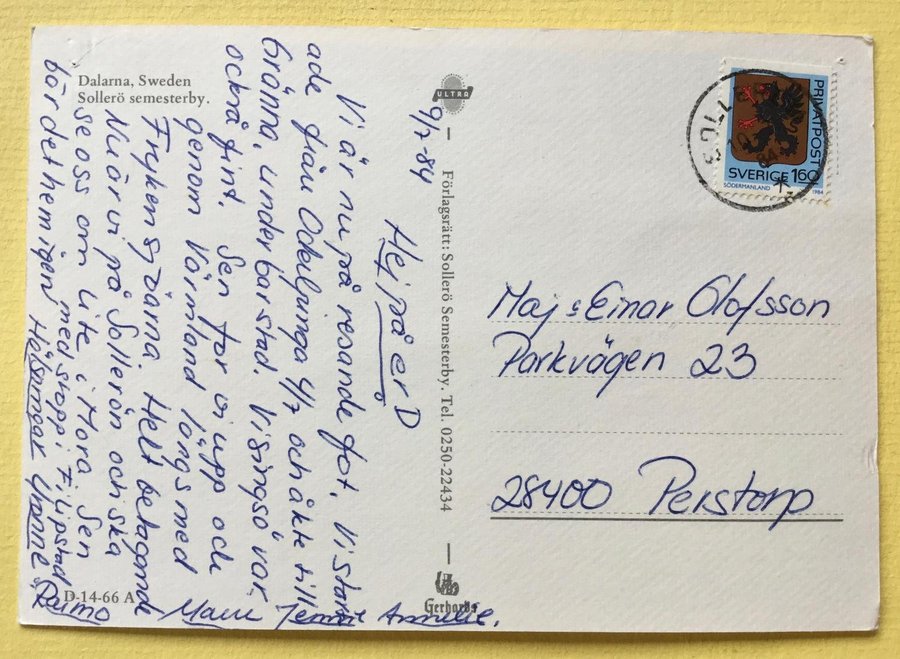 Dalarna, Sweden
Sollerö semesterby.
ULTRA
Förlagsrätt: Sollerö Semesterby. Tel. 0250-22434
Gerhards
D-14-66 A
9/7-84
Hej på er
Vi är nu på resande fot. Vi start
ade från Örkelljunga 4/7 och åkte till
Gränna, underbar stad. Visingsö var
också fint. Sen for vi upp och
genom Värmland längs med
Frykensjöarna. Helt betagande
Nu är vi på Sollerön och ska
se oss om lite i Mora. Sen
bär det hem igen med stopp i Filipstad
Hälsningar Yvonne
Raimo Jennie Annelie.
PRIVATPOST
SVERIGE 160
SÖDERMANLAND 1984
Maj & Einar Olofsson
Parkvägen 23
28400 Perstorp